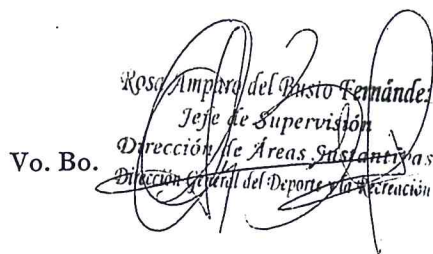 Rosa Amparo del Busto Fernández
Jefe de Supervisión
Vo. Bo. Dirección de Áreas Sustantivas
Dirección General del Deporte y la Recreación